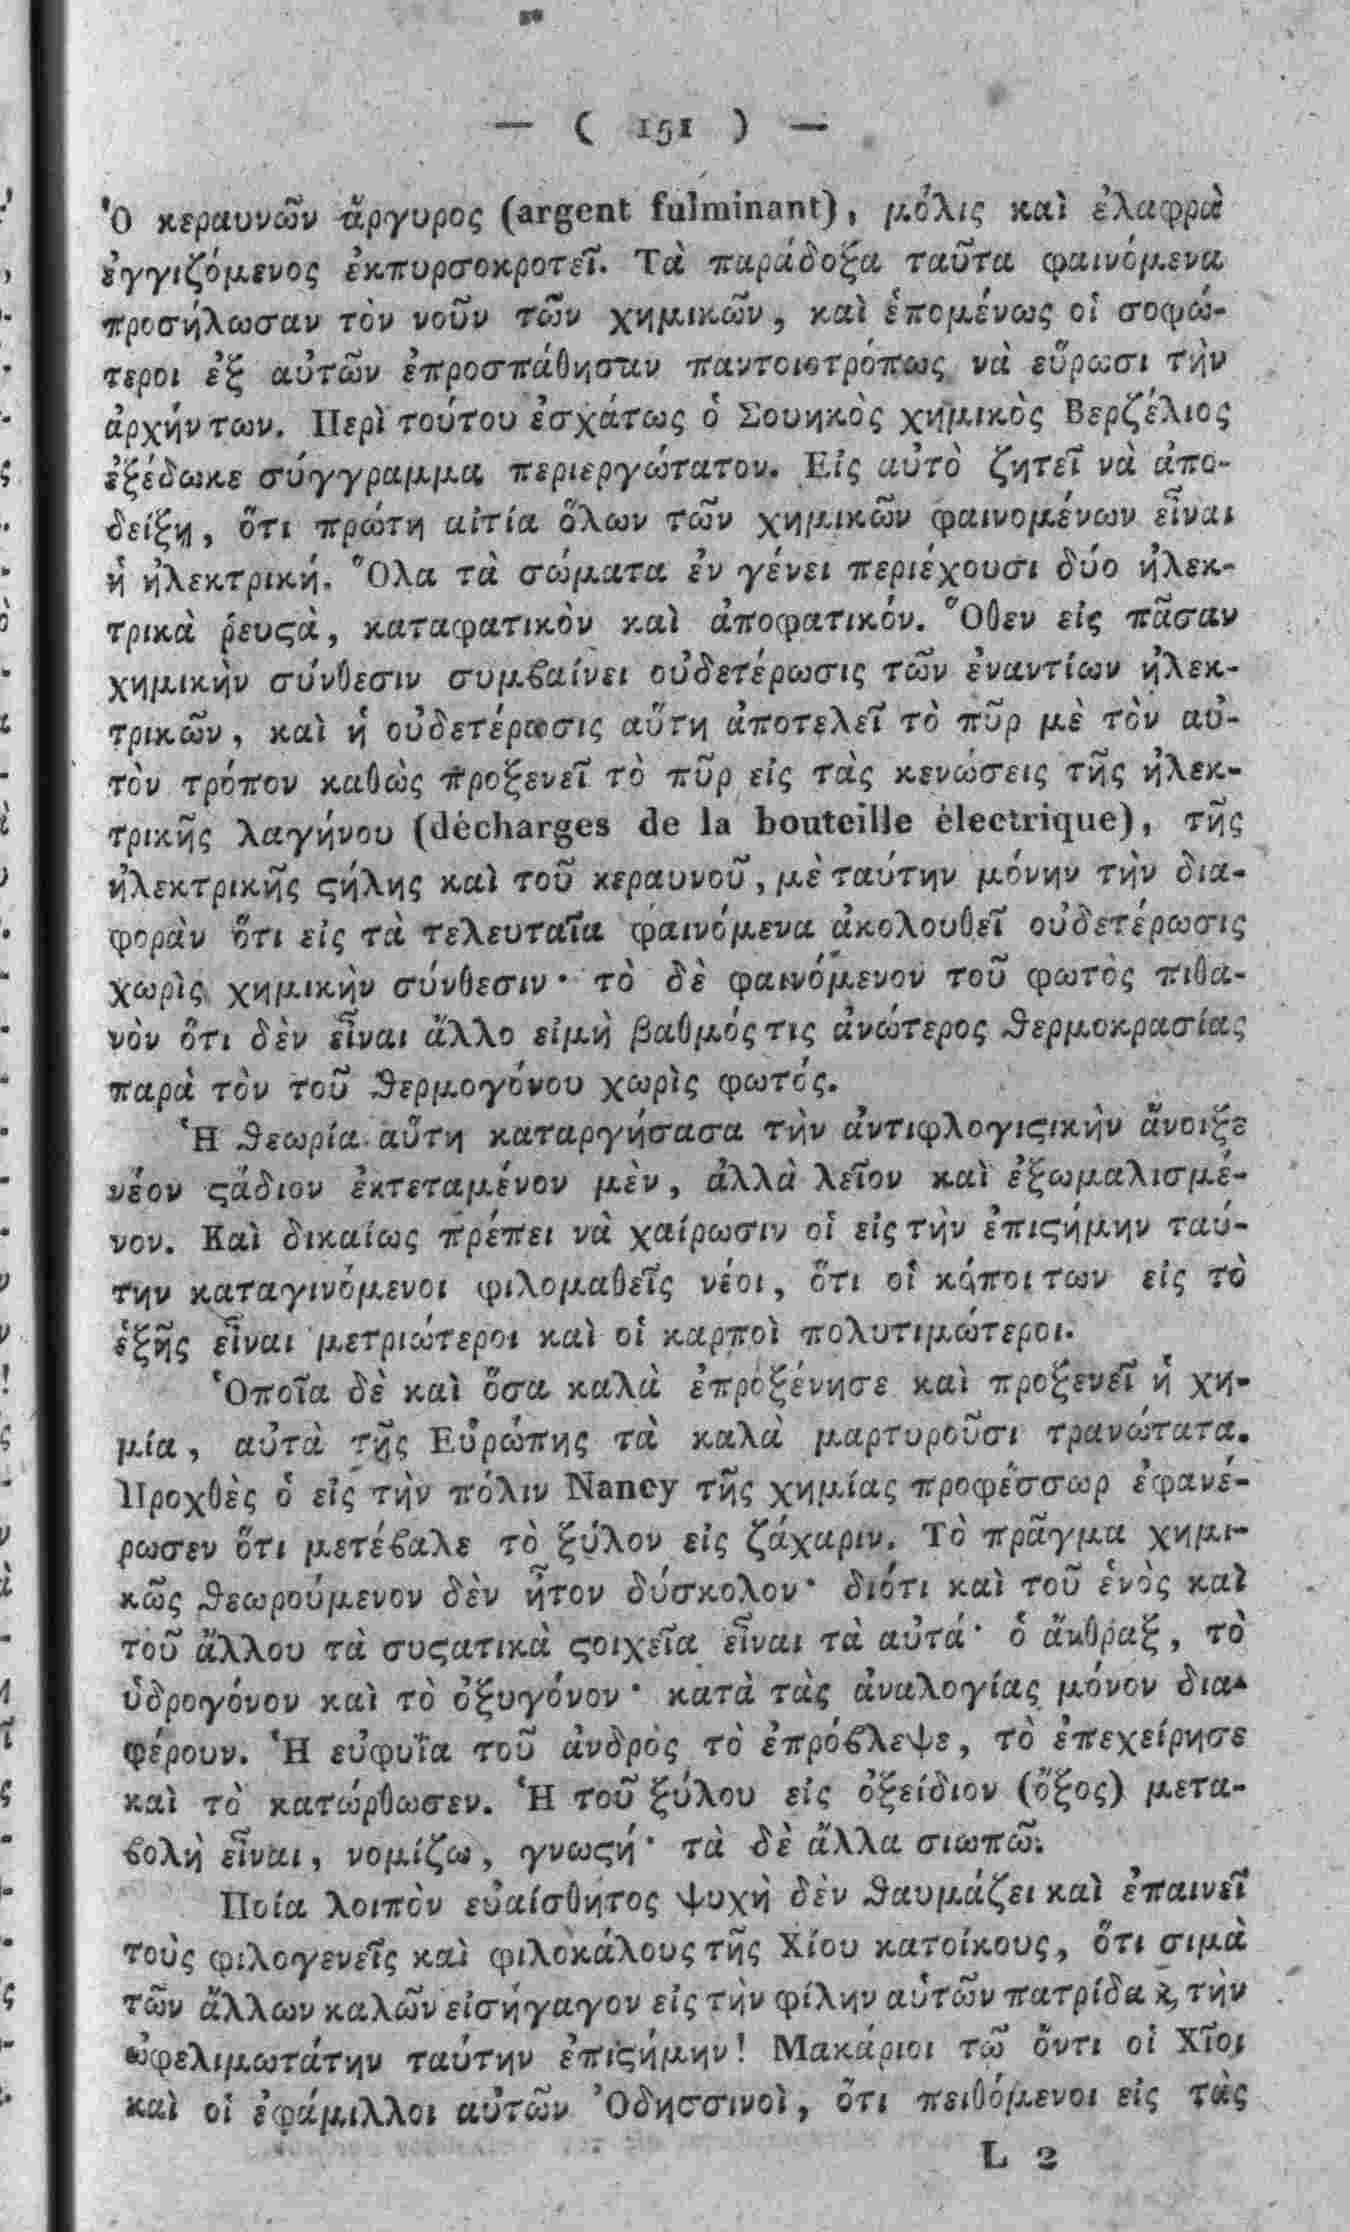 — ( 151 ) —
Ὁ κεραυνῶν ἄργυρος (argent fulminant), μόλις καὶ ἐλαφρὰ
ἐγγιζόμενος ἐκπυρσοκροτεῖ. Τὰ παράδοξα ταῦτα φαινόμενα
προσήλωσαν τὸν νοῦν τῶν χημικῶν, καὶ ἑπομένως οἱ σοφώ-
τεροι ἐξ αὐτῶν ἐπροσπάθησαν παντοιοτρόπως νὰ εὕρωσι τὴν
ἀρχήν των. Περὶ τούτου ἐσχάτως ὁ Σουηκὸς χημικὸς Βερζέλιος
ἐξέδωκε σύγγραμμα περιεργώτατον. Εἰς αὐτὸ ζητεῖ νὰ ἀπο-
δείξῃ, ὅτι πρώτη αἰτία ὅλων τῶν χημικῶν φαινομένων εἶναι
ἡ ἠλεκτρική. Ὅλα τὰ σώματα ἐν γένει περιέχουσι δύο ἠλεκ-
τρικὰ ῥευϛὰ, καταφατικὸν καὶ ἀποφατικόν. Ὅθεν εἰς πᾶσαν
χημικὴν σύνθεσιν συμϐαίνει οὐδετέρωσις τῶν ἐναντίων ἠλεκ-
τρικῶν, καὶ ἡ οὐδετέρωσις αὕτη ἀποτελεῖ τὸ πῦρ μὲ τὸν αὐ-
τὸν τρόπον καθὼς προξενεῖ τὸ πῦρ εἰς τὰς κενώσεις τῆς ἠλεκ-
τρικῆς λαγήνου (décharges de la bouteille électrique), τῆς
ἠλεκτρικῆς ϛήλης καὶ τοῦ κεραυνοῦ, μὲ ταύτην μόνην τὴν δια-
φορὰν ὅτι εἰς τὰ τελευταῖα φαινόμενα ἀκολουθεῖ οὐδετέρωσις
χωρὶς χημικὴν σύνθεσιν· τὸ δὲ φαινόμενον τοῦ φωτὸς πιθα-
νὸν ὅτι δὲν εἶναι ἄλλο εἰμὴ βαθμός τις ἀνώτερος ϑερμοκρασίας
παρὰ τὸν τοῦ ϑερμογόνου χωρὶς φωτός.
Ἡ ϑεωρία αὕτη καταργήσασα τὴν ἀντιφλογιϛικὴν ἄνοιξε
νέον ϛάδιον ἐκτεταμένον μὲν, ἀλλὰ λεῖον καὶ ἐξωμαλισμέ-
νον. Καὶ δικαίως πρέπει νὰ χαίρωσιν οἱ εἰς τὴν ἐπιϛήμην ταύ-
την καταγινόμενοι φιλομαθεῖς νέοι, ὅτι οἱ κόποι των εἰς τὸ
ἑξῆς εἶναι μετριώτεροι καὶ οἱ καρποὶ πολυτιμώτεροι.
Ὁποῖα δὲ καὶ ὅσα καλὰ ἐπροξένησε καὶ προξενεῖ ἡ χη-
μία, αὐτὰ τῆς Εὐρώπης τὰ καλὰ μαρτυροῦσι τρανώτατα.
Προχθὲς ὁ εἰς τὴν πόλιν Nancy τῆς χημίας προφέσσωρ ἐφανέ-
ρωσεν ὅτι μετέϐαλε τὸ ξύλον εἰς ζάχαριν. Τὸ πρᾶγμα χημι-
κῶς ϑεωρούμενον δὲν ἦτον δύσκολον· διότι καὶ τοῦ ἑνὸς καὶ
τοῦ ἄλλου τὰ συϛατικὰ ϛοιχεῖα εἶναι τὰ αὐτά· ὁ ἄνθραξ, τὸ
ὑδρογόνον καὶ τὸ ὀξυγόνον· κατὰ τὰς ἀναλογίας μόνον δια-
φέρουν. Ἡ εὐφυΐα τοῦ ἀνδρὸς τὸ ἐπρόϐλεψε, τὸ ἐπεχείρησε
καὶ τὸ κατώρθωσεν. Ἡ τοῦ ξύλου εἰς ὀξείδιον (ὄξος) μετα-
ϐολὴ εἶναι, νομίζω, γνωϛή· τὰ δὲ ἄλλα σιωπῶ.
Ποία λοιπὸν εὐαίσθητος ψυχὴ δὲν ϑαυμάζει καὶ ἐπαινεῖ
τοὺς φιλογενεῖς καὶ φιλοκάλους τῆς Χίου κατοίκους, ὅτι σιμὰ
τῶν ἄλλων καλῶν εἰσήγαγον εἰς τὴν φίλην αὑτῶν πατρίδα ϗ τὴν
ὠφελιμωτάτην ταύτην ἐπιϛήμην! Μακάριοι τῷ ὄντι οἱ Χῖοι
καὶ οἱ ἐφάμιλλοι αὐτῶν Ὀδησσινοὶ, ὅτι πειθόμενοι εἰς τὰς
L 2